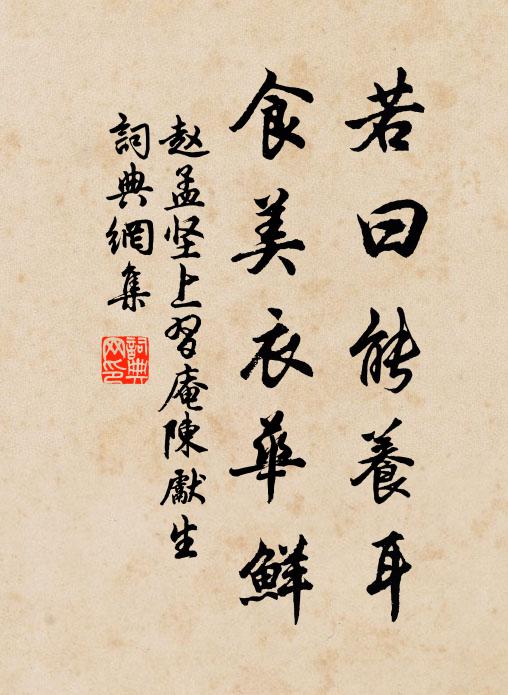 若曰能養耳
食美衣華鮮
赵孟坚上習庵陳獻生
詞典網集
詞典網印